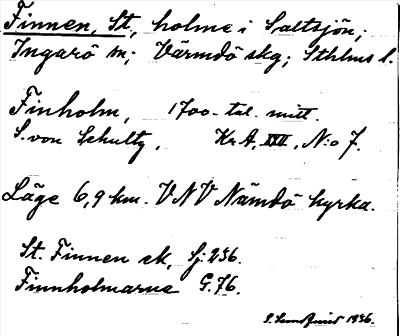 Finnen, St, holme i Saltsjön;
Ingarö sn; Värmdö skg; Sthlms l.
Finholm, 1700-tal. mitt.
S. von Schultz, Kr. A, XXII, N:o 7.
Läge 6,9 km. VNV Nämdö kyrka.
St. Finnen ek, Sj: 236.
Finnholmarne G. 76.
S. Lundquist 1936.